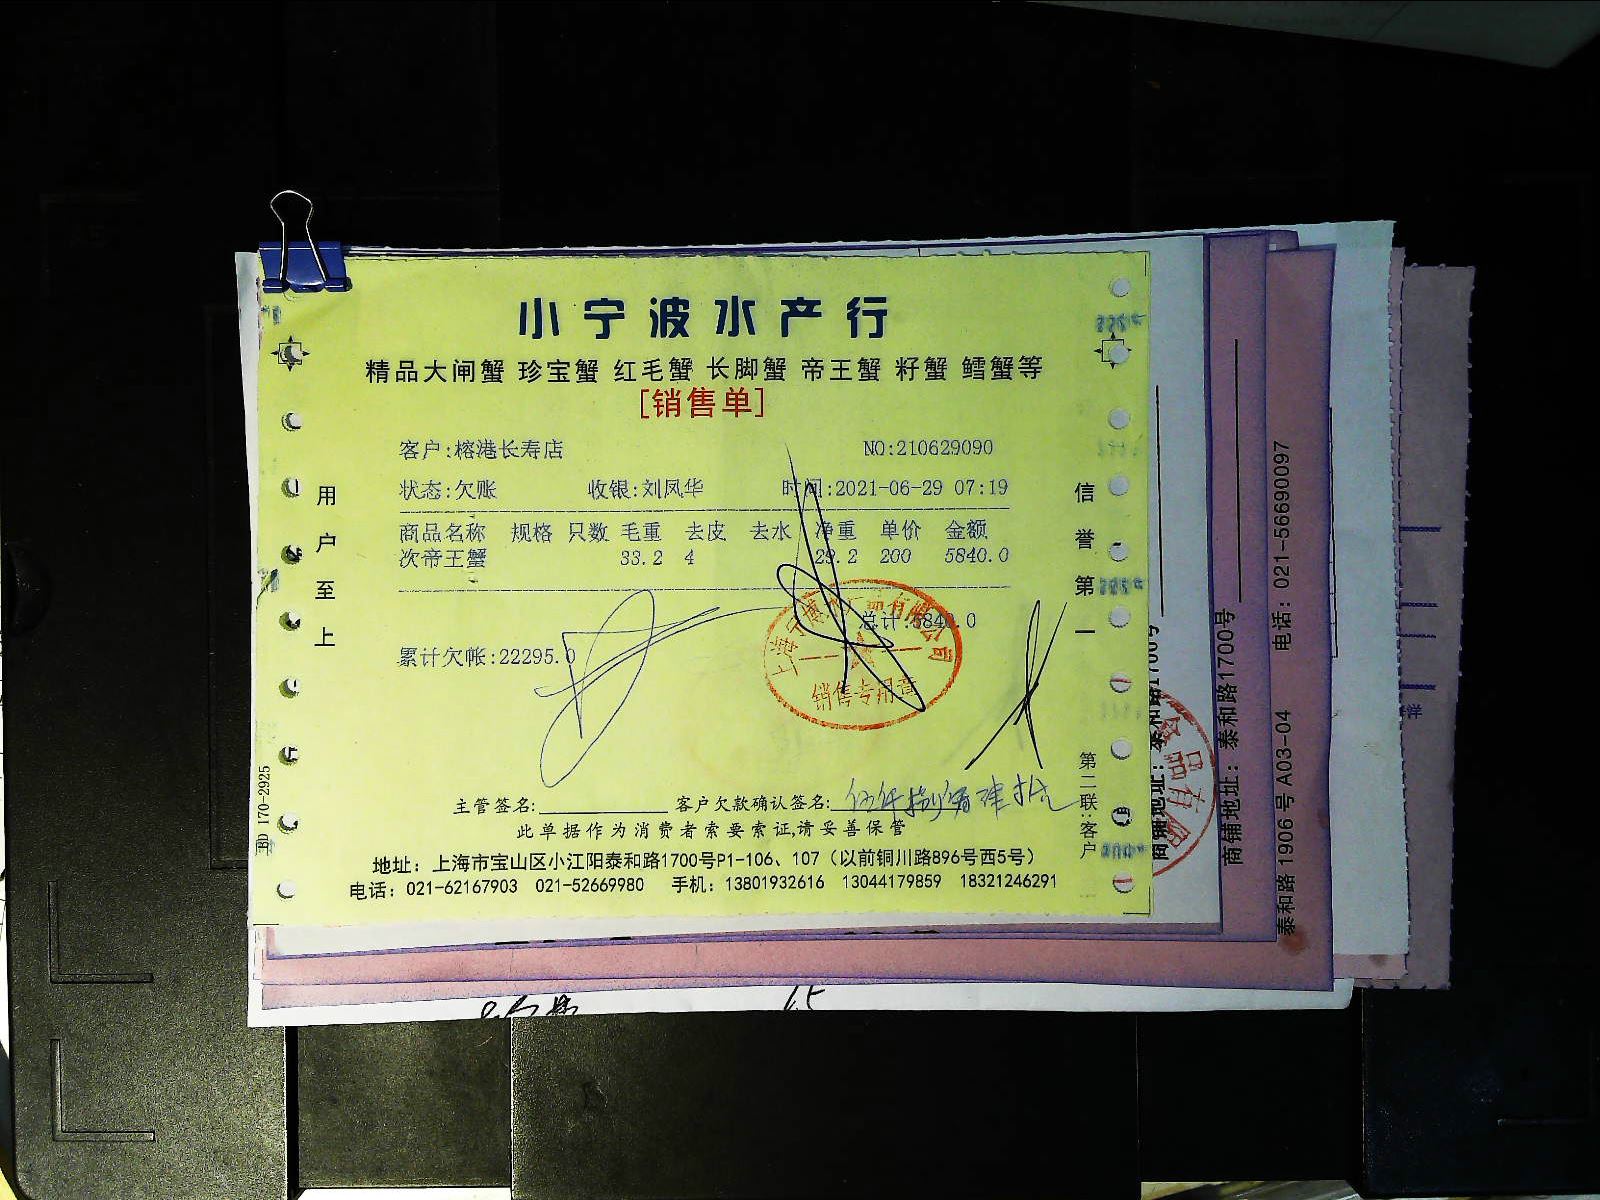 小宁波水产行
精品大闸蟹 珍宝蟹 红毛蟹 长脚蟹 帝王蟹 籽蟹 鳕蟹等
[销售单]
客户:榕港长寿店 NO:210629090
状态:欠账 收银:刘凤华 时间:2021-06-29 07:19
商品名称 规格 只数 毛重 去皮 去水 净重 单价 金额
次帝王蟹 33.2 4 29.2 200 5840.0
总计:5840.0
累计欠帐:22295.0
销售专用章
用户至上
信誉第一
第二联:客户
170-2925
主管签名: 客户欠款确认签名:
此单据作为消费者索要索证,请妥善保管
地址：上海市宝山区小江阳泰和路1700号P1-106、107（以前铜川路896号西5号）
电话：021-62167903 021-52669980 手机：13801932616 13044179859 18321246291
商铺地址：泰和路1700号
商铺地址：泰和路1700号
泰和路1906号A03-04 电话：021-56690097